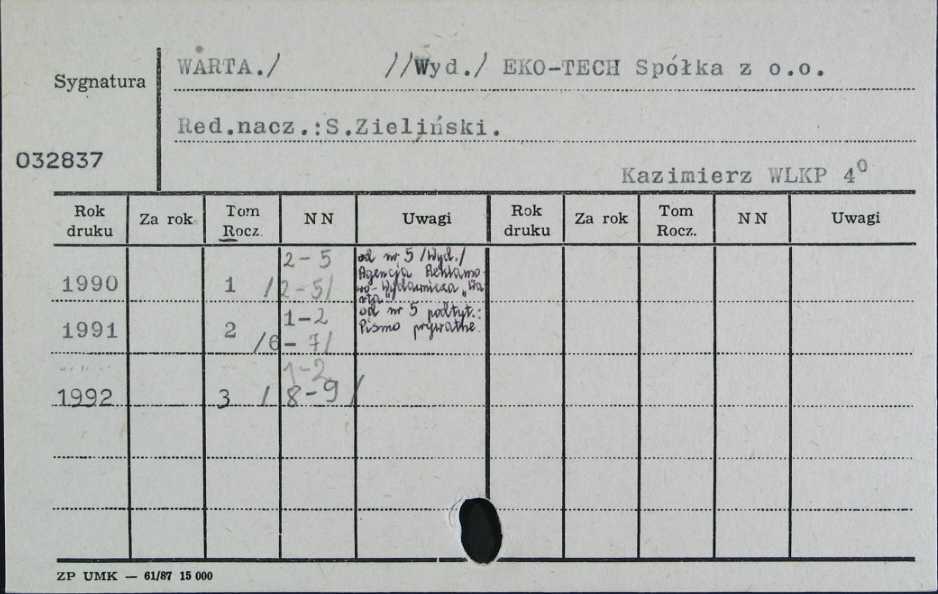 WARTA./ //Wyd./ EKO-TECH Spółka z o.o.
Sygnatura
Red.nacz.:S.Zieliński.
032837
Kazimierz WLKP 4⁰
Rok druku Za rok Tom Rocz. NN Uwagi Rok druku Za rok Tom Rocz. NN Uwagi
1990 1 2-5 /2-5/ od nr 5 /Wyd./
Agencja Reklamo-
wo-Wydawnicza „Wa
rta"
1991 2 1-2 /6-7/ od nr 5 podtyt.:
Pismo prywatne.
1992 3 1-2 /8-9/
ZP UMK — 61/87 15 000